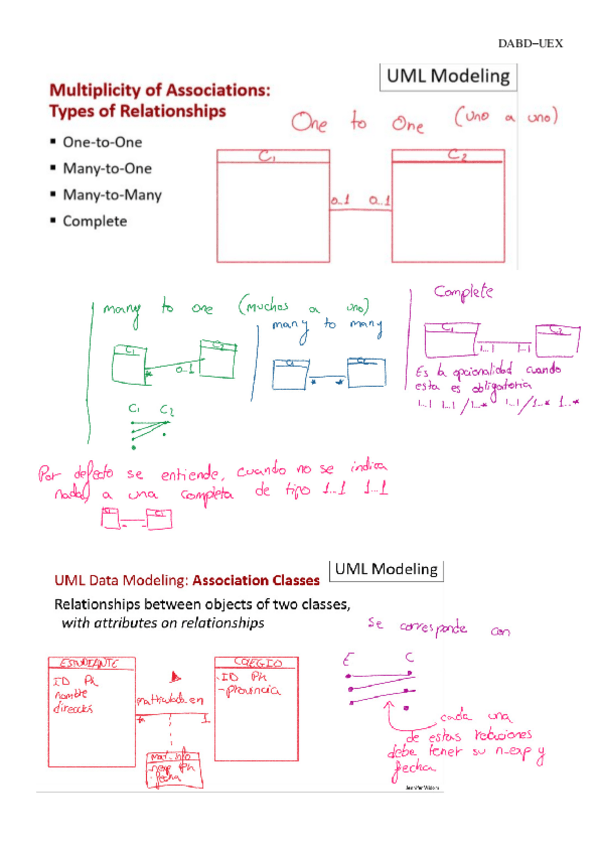 DABD–UEX
UML Modeling
Multiplicity of Associations:
Types of Relationships
▪ One-to-One
▪ Many-to-One
▪ Many-to-Many
▪ Complete
One to One (uno a uno)
C1
C2
0..1 0..1
many to one (muchos a uno)
C1
C2
* 0..1
C1 C2
many to many
C1
C2
* *
Complete
C1
C2
1..1 1..1
Es la opcionalidad cuando
esta es obligatoria
1..1 1..1 / 1..* 1..1 / 1..* 1..*
Por defecto se entiende, cuando no se indica
nada, a una completa de tipo 1..1 1..1
C1
UML Modeling
UML Data Modeling: Association Classes
Relationships between objects of two classes,
with attributes on relationships
Se corresponde con
ESTUDIANTE
ID PK
nombre
matriculado en
* 1
COLEGIO
- ID PK
- provincia
mat_info
- nexp PK
- fecha
E C
cada una
de estas relaciones
debe tener su n-exp y
fecha
Jennifer Widom